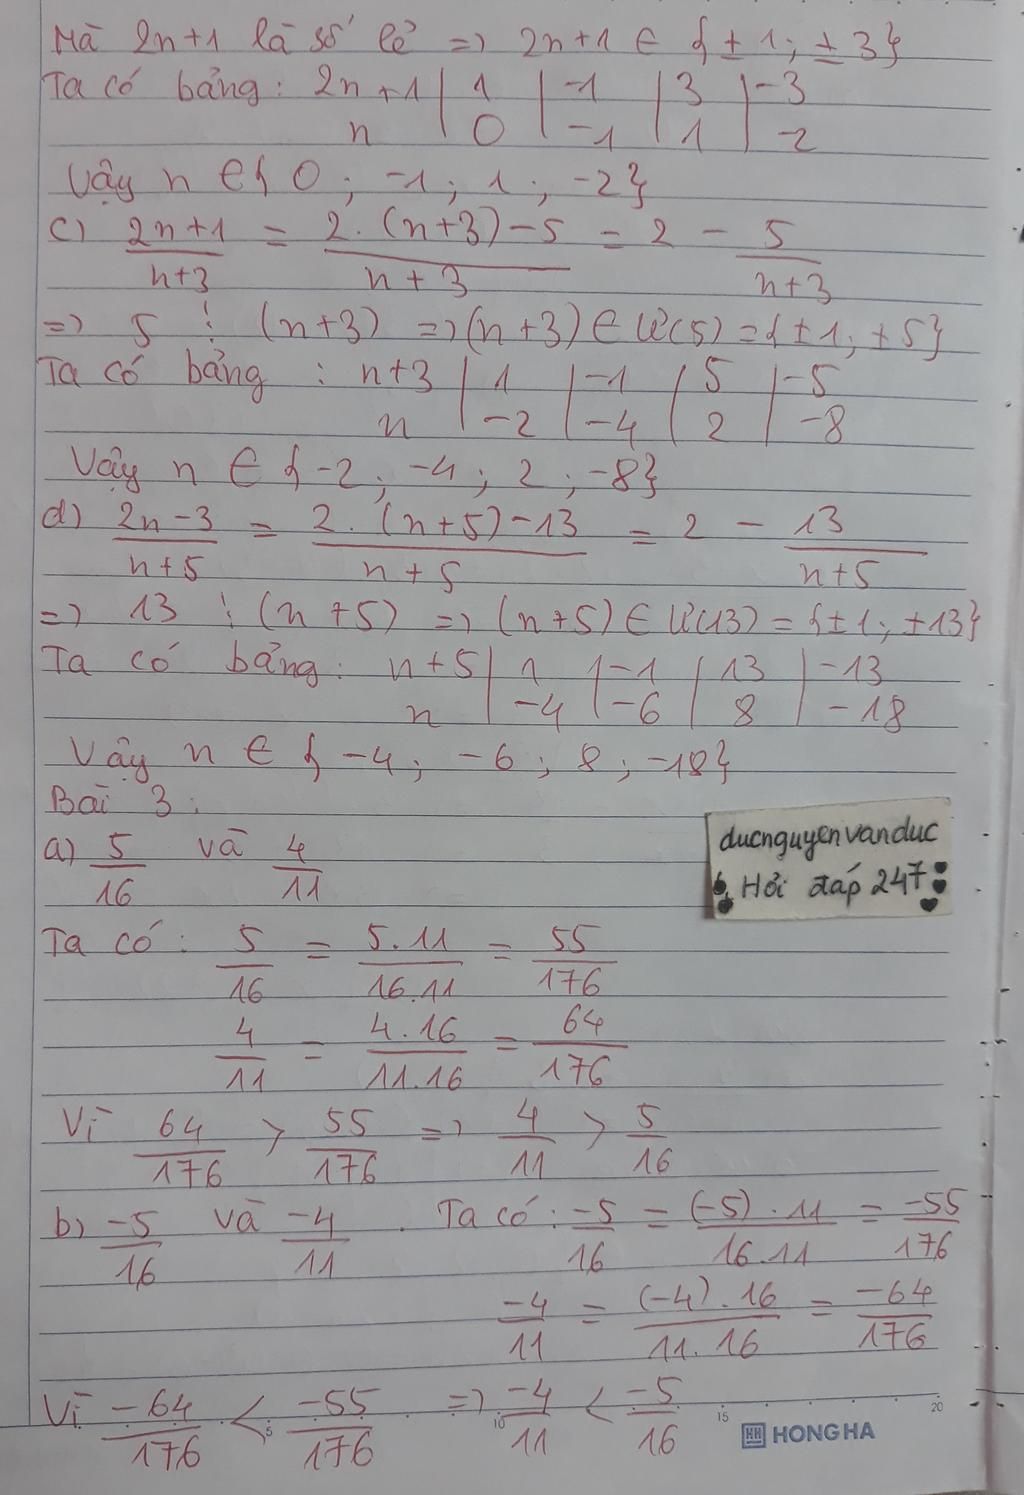 Mà 2n+1 là số lẻ => 2n+1 ∈ {±1; ±3}
Ta có bảng: 2n+1 | 1 | -1 | 3 | -3
n | 0 | -1 | 1 | -2
Vậy n ∈ { 0 ; -1 ; 1 ; -2}
c) (2n+1)/(n+3) = (2.(n+3)-5)/(n+3) = 2 - 5/(n+3)
=> 5 ⋮ (n+3) => (n+3) ∈ Ư(5) = {±1; ±5}
Ta có bảng : n+3 | 1 | -1 | 5 | -5
n | -2 | -4 | 2 | -8
Vậy n ∈ {-2 ; -4 ; 2 ; -8}
d) (2n-3)/(n+5) = (2.(n+5)-13)/(n+5) = 2 - 13/(n+5)
=> 13 ⋮ (n+5) => (n+5) ∈ Ư(13) = {±1; ±13}
Ta có bảng: n+5 | 1 | -1 | 13 | -13
n | -4 | -6 | 8 | -18
Vậy n ∈ {-4; -6 ; 8 ; -18}
Bài 3:
a) 5/16 và 4/11
ducnguyenvanduc
Hỏi đáp 247
Ta có: 5/16 = 5.11/16.11 = 55/176
4/11 = 4.16/11.16 = 64/176
Vì 64/176 > 55/176 => 4/11 > 5/16
b) -5/16 và -4/11 . Ta có: -5/16 = (-5).11/16.11 = -55/176
-4/11 = (-4).16/11.16 = -64/176
Vì -64/176 < -55/176 => -4/11 < -5/16
5 10 15 20
HH HONG HA